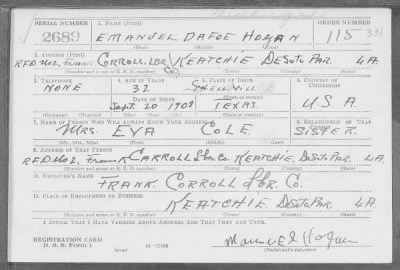 SERIAL NUMBER 1. NAME (Print) ORDER NUMBER
2689 EMANUEL DAFOE HOGAN 115
(First) (Middle) (Last)
2. ADDRESS (Print)
R.F.D. No2, Frank Corroll LBR Co KEATCHIE DeSoto PAR. LA.
(Number and street or R. F. D. number) (Town) (County) (State)
3. TELEPHONE 4. AGE IN YEARS 5. PLACE OF BIRTH 6. COUNTRY OF CITIZENSHIP
NONE 32
DATE OF BIRTH (Town or county)
Sept. 20 1908 TEXAS. U S A
(Mo.) (Day) (Yr.) (State or country)
7. NAME OF PERSON WHO WILL ALWAYS KNOW YOUR ADDRESS 8. RELATIONSHIP OF THAT PERSON
Mrs. EVA COLE. SISTER.
(Mr., Mrs., Miss) (First) (Middle) (Last)
9. ADDRESS OF THAT PERSON
R.F.D. No2, Frank CARROLL Lbr. Co. KEATCHIE. DeSoto PAR. LA.
(Number and street or R. F. D. number) (Town) (County) (State)
10. EMPLOYER'S NAME
FRANK. CORROLL LBR. Co.
11. PLACE OF EMPLOYMENT OR BUSINESS
KEATCHIE DeSoto PAR. LA.
(Number and street or R. F. D. number) (Town) (County) (State)
I AFFIRM THAT I HAVE VERIFIED ABOVE ANSWERS AND THAT THEY ARE TRUE.
REGISTRATION CARD
D. S. S. Form 1 (over) 16—17105
Manuel Hogan